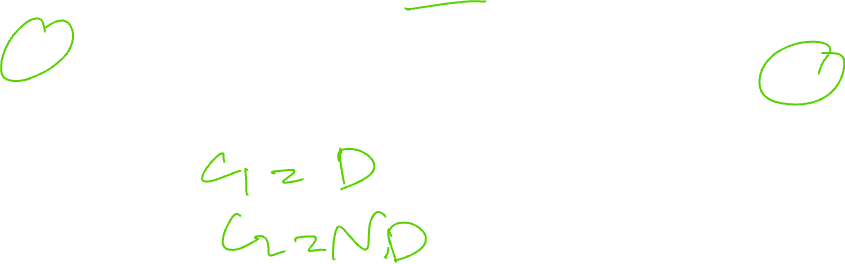 C1 = D
C2 = N.D